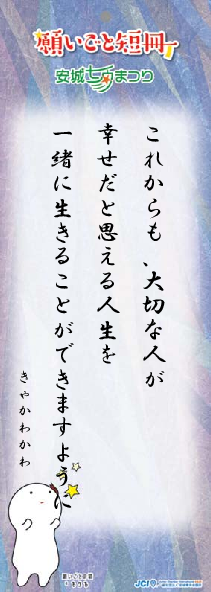 願いごと短冊
安城七夕まつり
これからも、大切な人が
幸せだと思える人生を
一緒に生きることができますように
きゃかわかわ
願いごと短冊
JCI